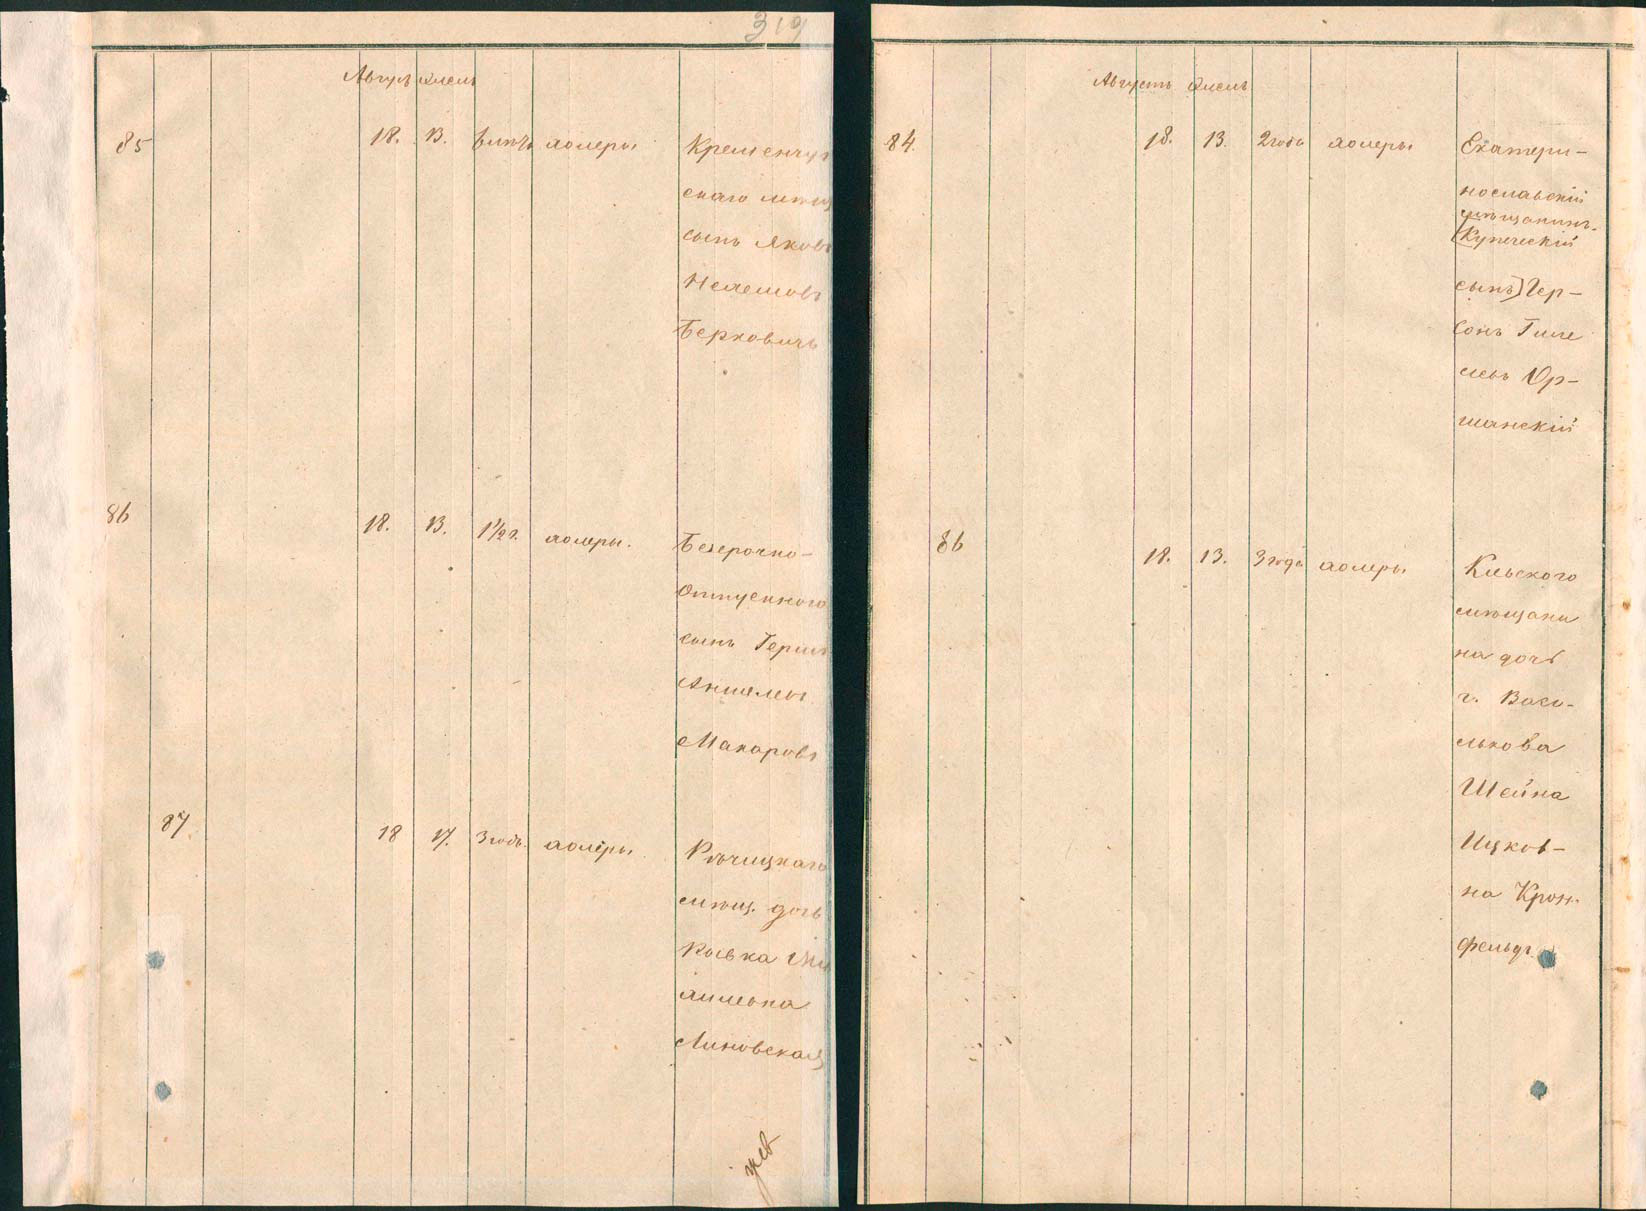 319
Августъ Элелъ
85 18. 13. 6 лѣтъ холеры Кременчуг
скаго мѣщ
сынъ Яковъ
Берковичъ
86 18. 13. 1 1/2 г. холеры. Безсрочно-
отпускного
сынъ Герш
Аншелевъ
Макаровъ
87 18 17. 3 года. холеры Рѣчицкаго
мѣщ. дочь
Ривка
Линовская
Августъ Элелъ
84. 18. 13. 2 года холеры Екатери-
нославскій
мѣщанинъ
(Купеческій
сынъ) Гер-
сонъ Гиле
левъ Ор-
шанскій
86 18. 13. 3 года холеры Кіевского
мѣщани
на дочь
г. Васи-
лькова
Шейна
Ицков-
на Крон-
фельдъ